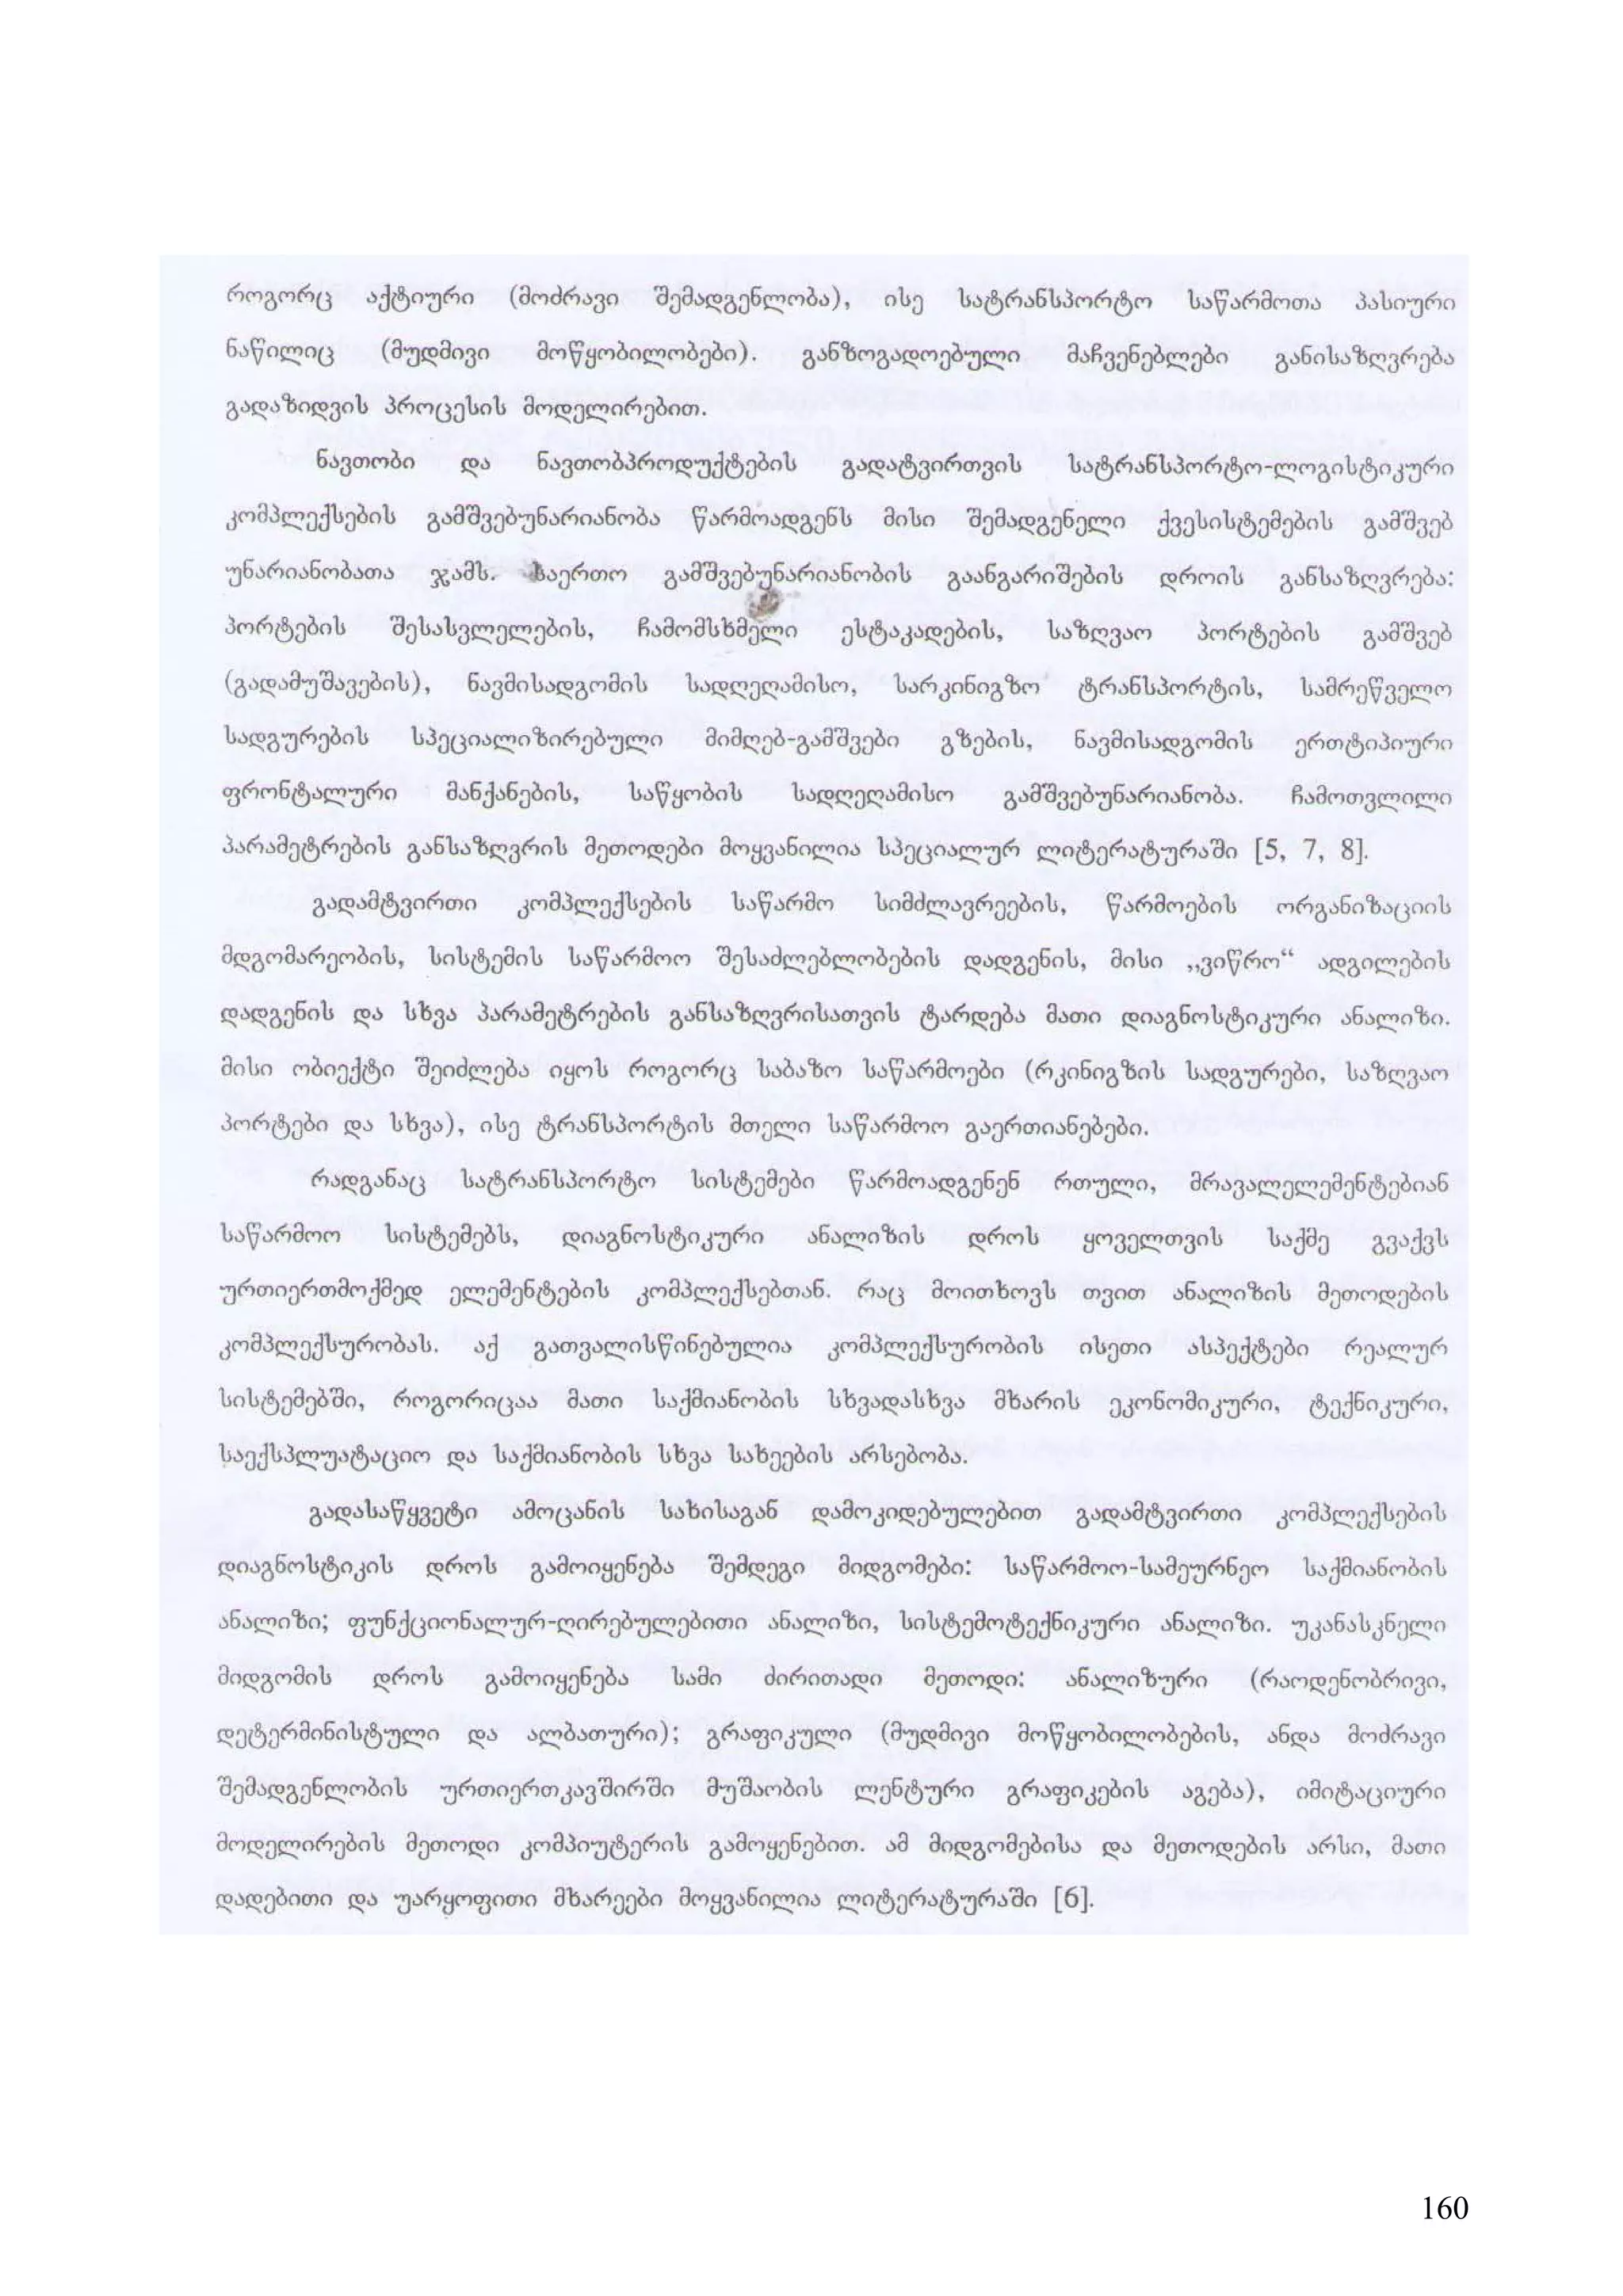 როგორც აქტიური (მოძრავი შემადგენლობა), ისე სატრანსპორტო საწარმოთა პასიური
ნაწილიც (მუდმივი მოწყობილობები). განზოგადოებული მაჩვენებლები განისაზღვრება
გადაზიდვის პროცესის მოდელირებით.
ნავთობი და ნავთობპროდუქტების გადატვირთვის სატრანსპორტო-ლოგისტიკური
კომპლექსების გამშვებუნარიანობა წარმოადგენს მისი შემადგენელი ქვესისტემების გამშვებ
უნარიანობათა ჯამს. საერთო გამშვებუნარიანობის გაანგარიშების დროის განსაზღვრება:
პორტების შესასვლელების, ჩამომსხმელი ესტაკადების, საზღვაო პორტების გამშვებ
(გადამუშავების), ნავმისადგომის სადღეღამისო, სარკინიგზო ტრანსპორტის, სამრეწველო
სადგურების სპეციალიზირებული მიმღებ-გამშვები გზების, ნავმისადგომის ერთტიპიური
ფრონტალური მანქანების, საწყობის სადღეღამისო გამშვებუნარიანობა. ჩამოთვლილი
პარამეტრების განსაზღვრის მეთოდები მოყვანილია სპეციალურ ლიტერატურაში [5, 7, 8].
გადამტვირთი კომპლექსების საწარმო სიმძლავრეების, წარმოების ორგანიზაციის
მდგომარეობის, სისტემის საწარმოო შესაძლებლობების დადგენის, მისი „ვიწრო“ ადგილების
დადგენის და სხვა პარამეტრების განსაზღვრისათვის ტარდება მათი დიაგნოსტიკური ანალიზი.
მისი ობიექტი შეიძლება იყოს როგორც საბაზო საწარმოები (რკინიგზის სადგურები, საზღვაო
პორტები და სხვა), ისე ტრანსპორტის მთელი საწარმოო გაერთიანებები.
რადგანაც სატრანსპორტო სისტემები წარმოადგენენ რთული, მრავალელემენტებიან
საწარმოო სისტემებს, დიაგნოსტიკური ანალიზის დროს ყოველთვის საქმე გვაქვს
ურთიერთმოქმედ ელემენტების კომპლექსებთან. რაც მოითხოვს თვით ანალიზის მეთოდების
კომპლექსურობას. აქ გათვალისწინებულია კომპლექსურობის ისეთი ასპექტები რეალურ
სისტემებში, როგორიცაა მათი საქმიანობის სხვადასხვა მხარის ეკონომიკური, ტექნიკური,
საექსპლუატაციო და საქმიანობის სხვა სახეების არსებობა.
გადასაწყვეტი ამოცანის სახისაგან დამოკიდებულებით გადამტვირთი კომპლექსების
დიაგნოსტიკის დროს გამოიყენება შემდეგი მიდგომები: საწარმოო-სამეურნეო საქმიანობის
ანალიზი; ფუნქციონალურ-ღირებულებითი ანალიზი, სისტემოტექნიკური ანალიზი. უკანასკნელი
მიდგომის დროს გამოიყენება სამი ძირითადი მეთოდი: ანალიზური (რაოდენობრივი,
დეტერმინისტული და ალბათური); გრაფიკული (მუდმივი მოწყობილობების, ანდა მოძრავი
შემადგენლობის ურთიერთკავშირში მუშაობის ლენტური გრაფიკების აგება), იმიტაციური
მოდელირების მეთოდი კომპიუტერის გამოყენებით. ამ მიდგომებისა და მეთოდების არსი, მათი
დადებითი და უარყოფითი მხარეები მოყვანილია ლიტერატურაში [6].
160